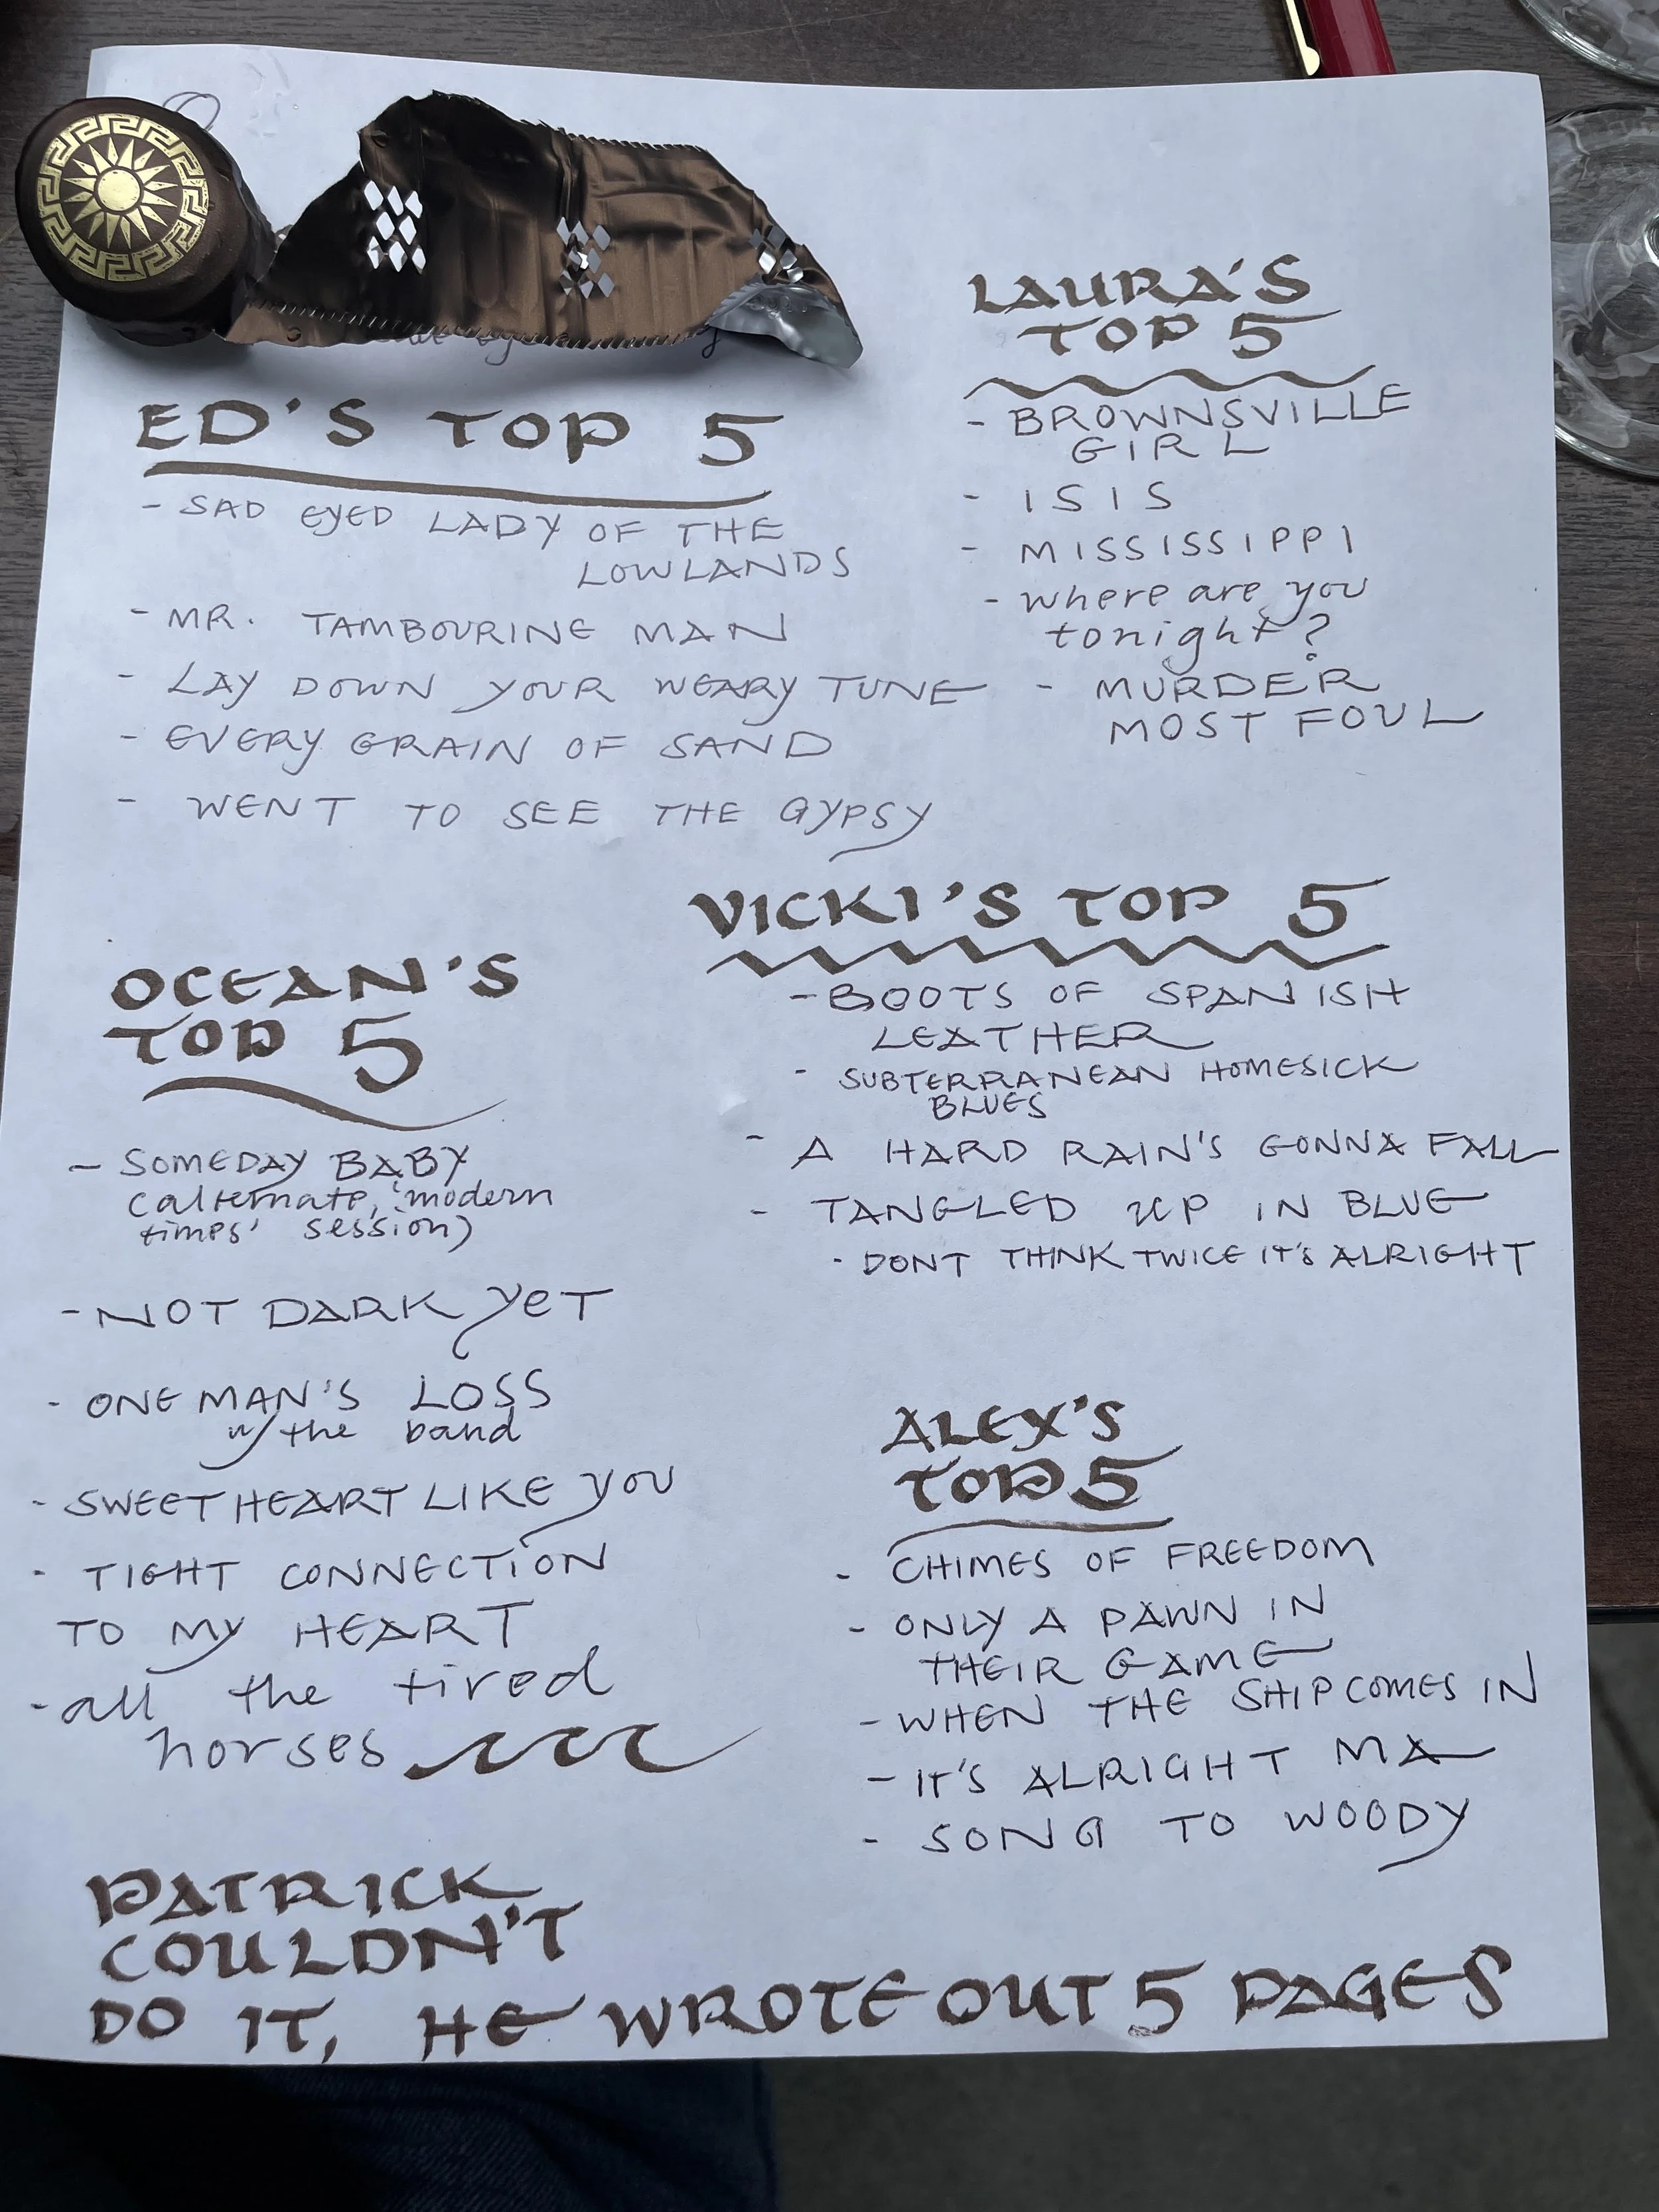 ED'S TOP 5
- SAD EYED LADY OF THE
LOWLANDS
- MR. TAMBOURINE MAN
- LAY DOWN YOUR WEARY TUNE
- EVERY GRAIN OF SAND
- WENT TO SEE THE GYPSY
LAURA'S
TOP 5
- BROWNSVILLE
GIRL
- ISIS
- MISSISSIPPI
- where are you
tonight?
- MURDER
MOST FOUL
VICKI'S TOP 5
- BOOTS OF SPANISH
LEATHER
- SUBTERRANEAN HOMESICK
BLUES
- A HARD RAIN'S GONNA FALL
- TANGLED UP IN BLUE
- DONT THINK TWICE IT'S ALRIGHT
OCEAN'S
TOP 5
- SOMEDAY BABY
(alternate, 'modern
times' session)
- NOT DARK YET
- ONE MAN'S LOSS
w/ the band
- SWEETHEART LIKE YOU
- TIGHT CONNECTION
TO MY HEART
- all the tired
horses
ALEX'S
TOP 5
- CHIMES OF FREEDOM
- ONLY A PAWN IN
THEIR GAME
- WHEN THE SHIP COMES IN
- IT'S ALRIGHT MA
- SONG TO WOODY
PATRICK
COULDN'T
DO IT, HE WROTE OUT 5 PAGES